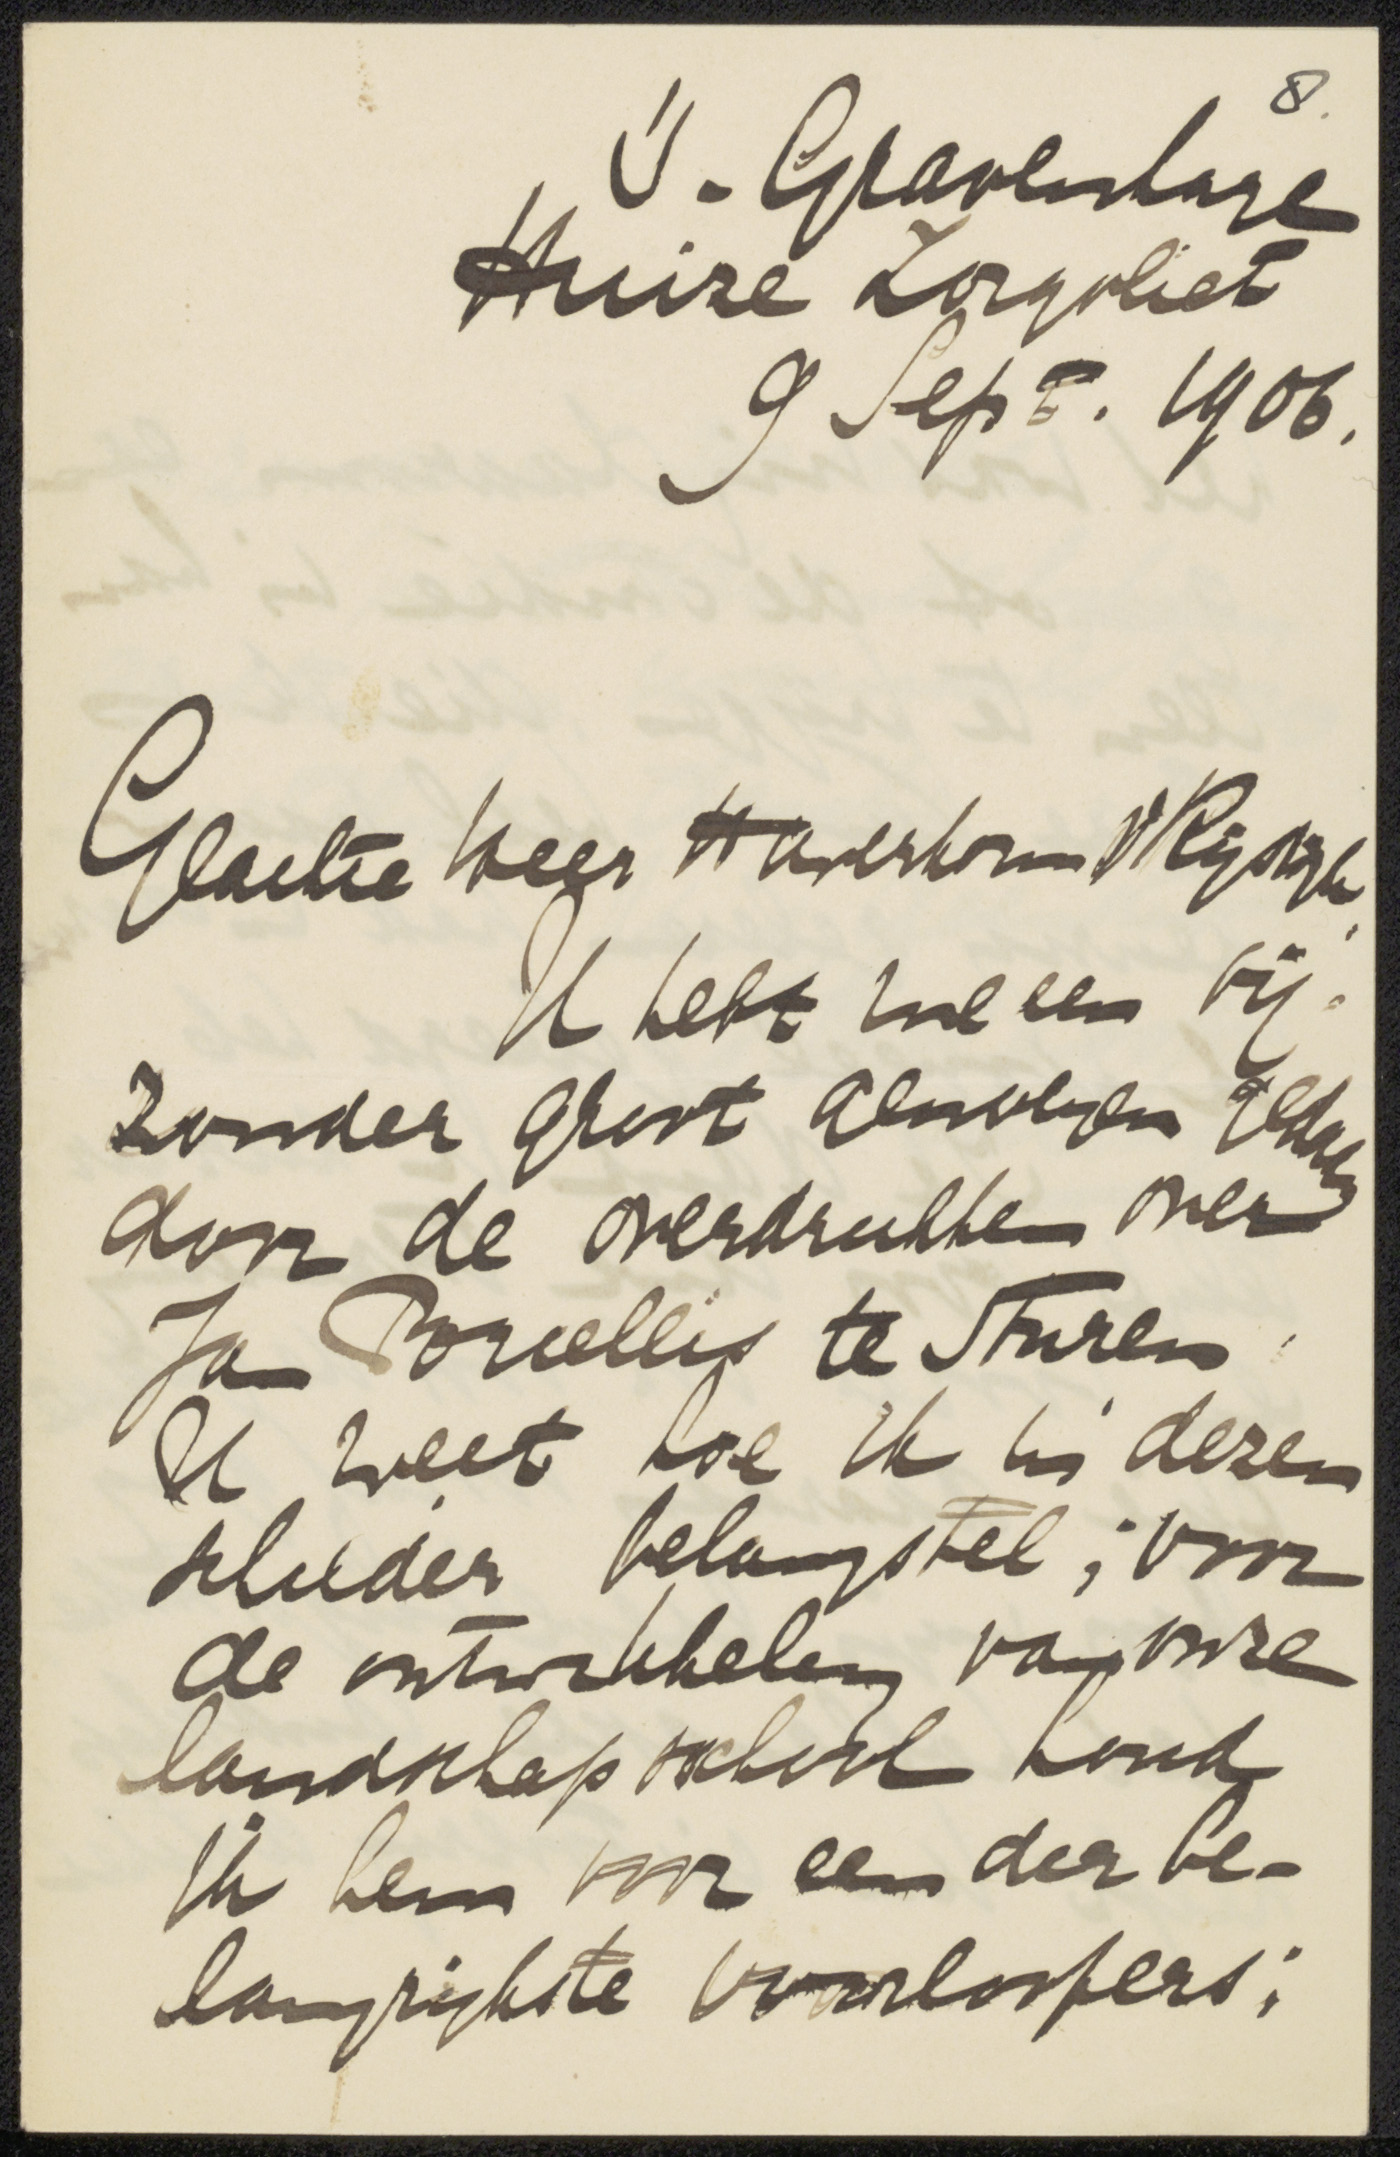 8.
'S-Gravenhage
Huize Zorgvliet
9 Sept. 1906.
Geachte heer Haverkorn v Rijsewijk,
U hebt me een bij-
zonder groot genoegen gedaan
door de overdrukken over
Jan Porcellis te sturen.
U weet hoe ik in dezen
schilder belangstel; voor
de ontwikkeling van onze
landschapschool houd
ik hem voor een der be-
langrijkste voorloopers;